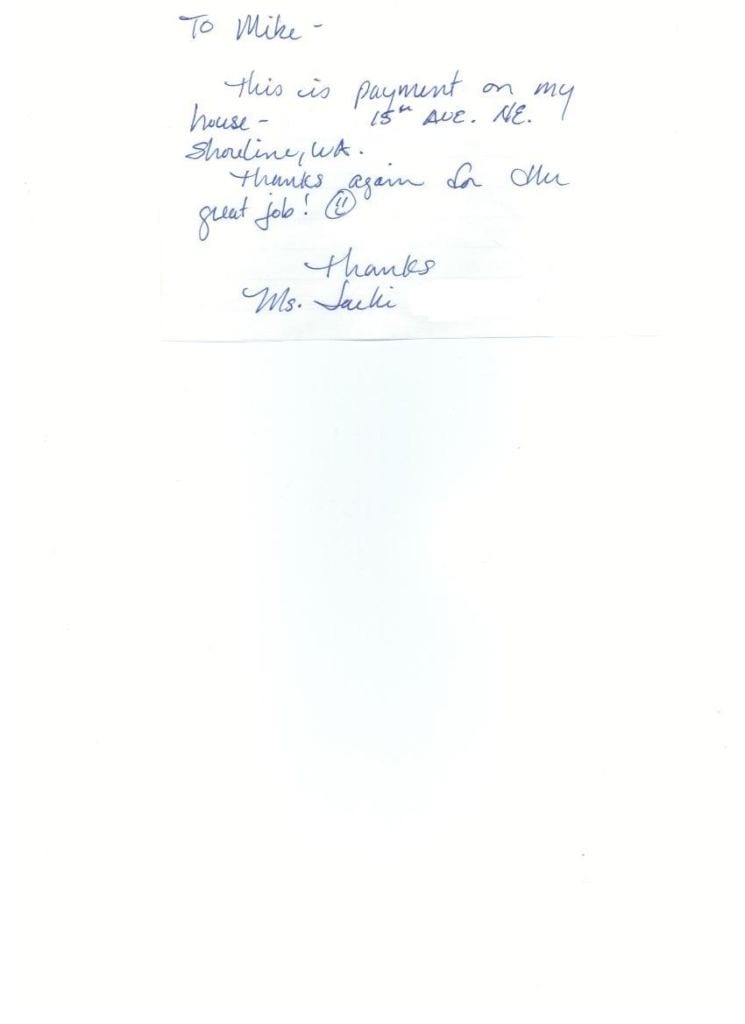 To Mike -
This is payment on my
house - 15th AVE. NE.
Shoreline, WA.
Thanks again for the
great job!
Thanks
Ms.